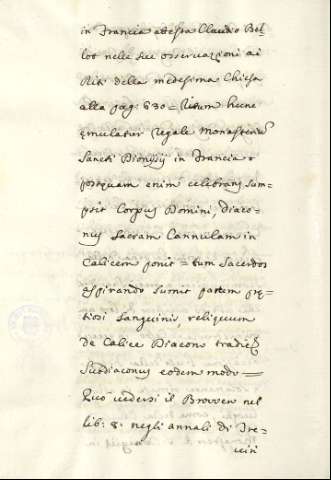 in Francia attesta Claudio Bel
lot nelle sue osservazioni ai
Riti della medesima Chiesa
alla pag: 830 = Ritum hunc
emulatur Regale Monasteriũ
Sancti Dionysij in Francia
postquam enim celebrans sum=
psit Corpus Domini, diaco=
nus Sacram Cannulam in
Calicem ponit = tum Sacerdos
aspirando sumit partem pre=
tiosi Sanguinis, reliquum
de Calice Diacono tradit
Subdiaconus eodem modo =
Può vedersi il Browen nel
lib: 8: negli annali di Tre=
viri